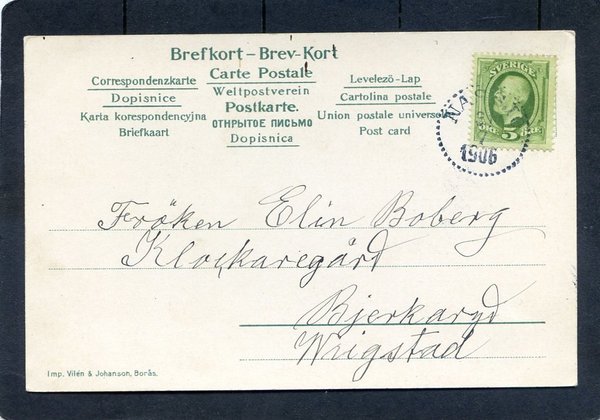 Brefkort – Brev-Kort
Carte Postale
Correspondenzkarte
Weltpostverein
Levelezö-Lap
Dopisnice
Postkarte.
Cartolina postale
Karta korespondencyjna
ОТКРЫТОЕ ПИСЬМО
Union postale universe
Briefkaart
Dopisnica
Post card
SVERIGE
5 ÖRE
1906
Fröken Elin Boberg
Klockaregård
Bjerkaryd
Wrigstad
Imp. Vilén & Johanson, Borås.